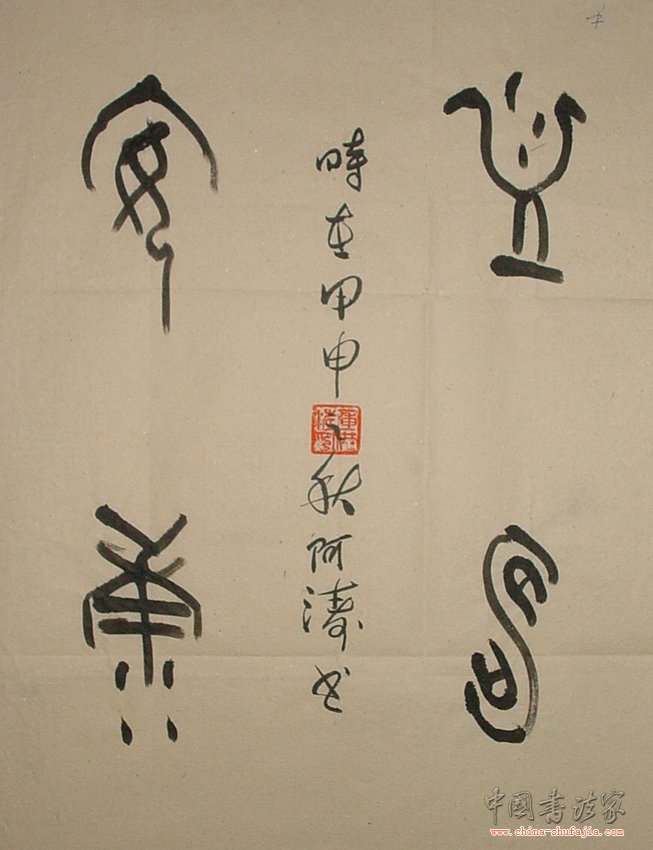 益壽
時在甲申之秋阿濤书
安康
中国書法家
www.china-shufajia.com